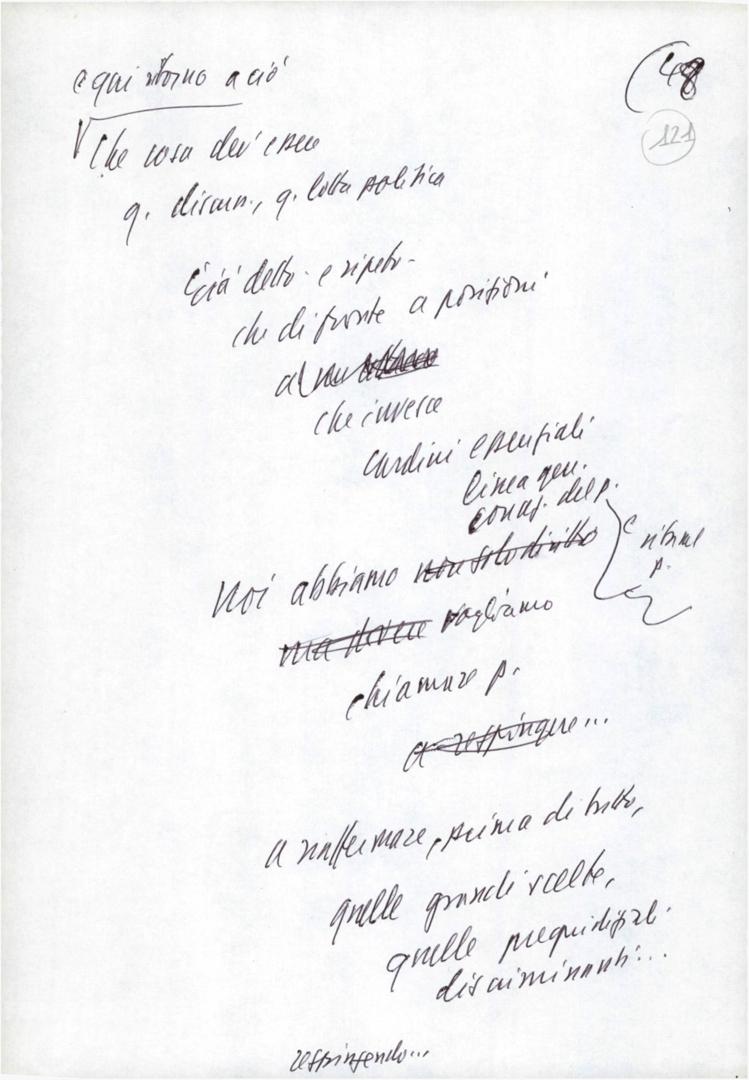 e qui ritorno a ciò
(48
121
Che cosa dev'essere
q. discuss., q. lotta politica
Già detto - e ripeto -
che di fronte a posizioni
al
che invece
cardini essenziali
linea gen.
conc. del p.
Noi abbiamo non solo diritto
ma dovere vogliamo
chiamare p.
a respingere...
a riaffermare, prima di tutto,
quelle grandi scelte,
quelle pregiudiziali
discriminanti...
respingendo...